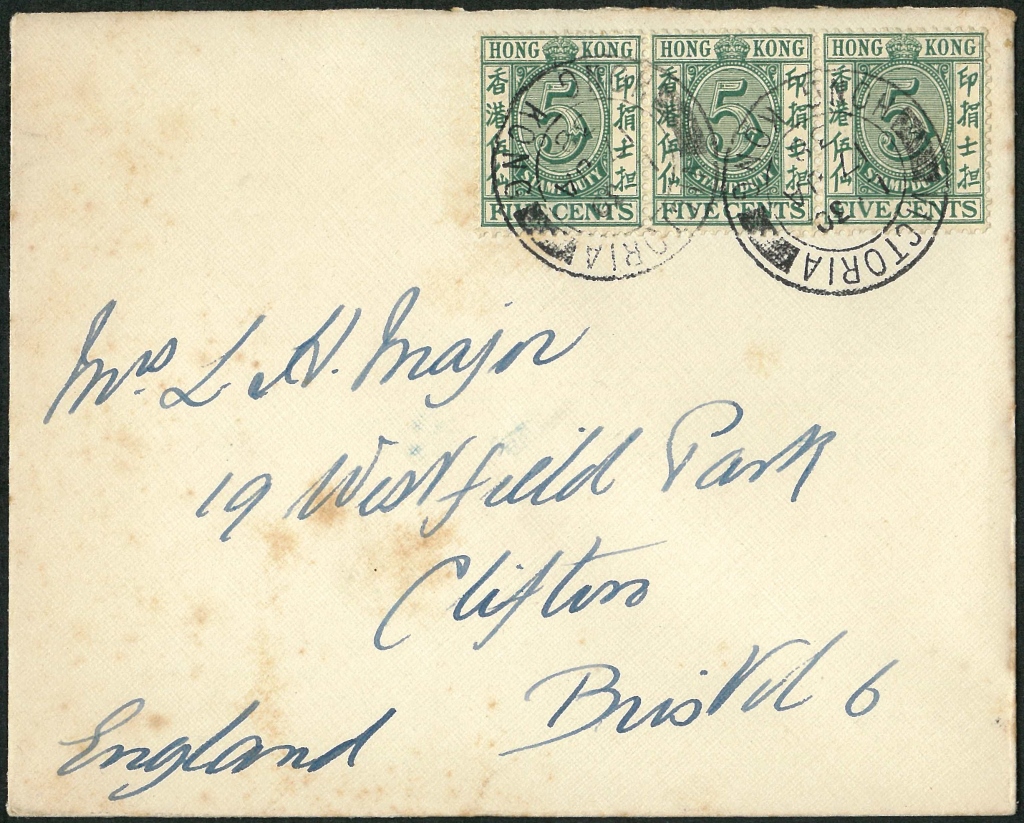 HONG KONG HONG KONG HONG KONG
香港伍仙 5 印捐士担 香港伍仙 5 印捐士担 香港伍仙 5 印捐士担
STAMP DUTY STAMP DUTY STAMP DUTY
FIVE CENTS FIVE CENTS FIVE CENTS
VICTORIA HONG KONG
VICTORIA HONG KONG
Mrs L H. Major
19 Westfield Park
Clifton
Bristol 6
England